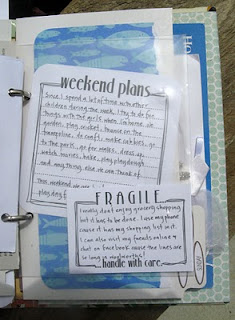 weekend plans
Since I spend a lot of time with other
children during the week, I try to do fun
things with the girls when I'm home. We
garden, play cricket, bounce on the
trampoline, do crafts, make cubbies, go
to the park, go for walks, dress up,
watch movies, bake, play playdough
and any thing else we can think of.
This weekend we
play day f
FRAGILE
I really don't enjoy grocery shopping
but it has to be done. I use my phone
cause it has my shopping list in it.
I can also visit my friends online &
chat on facebook cause the lines are
so long in woolworths!
handle with care